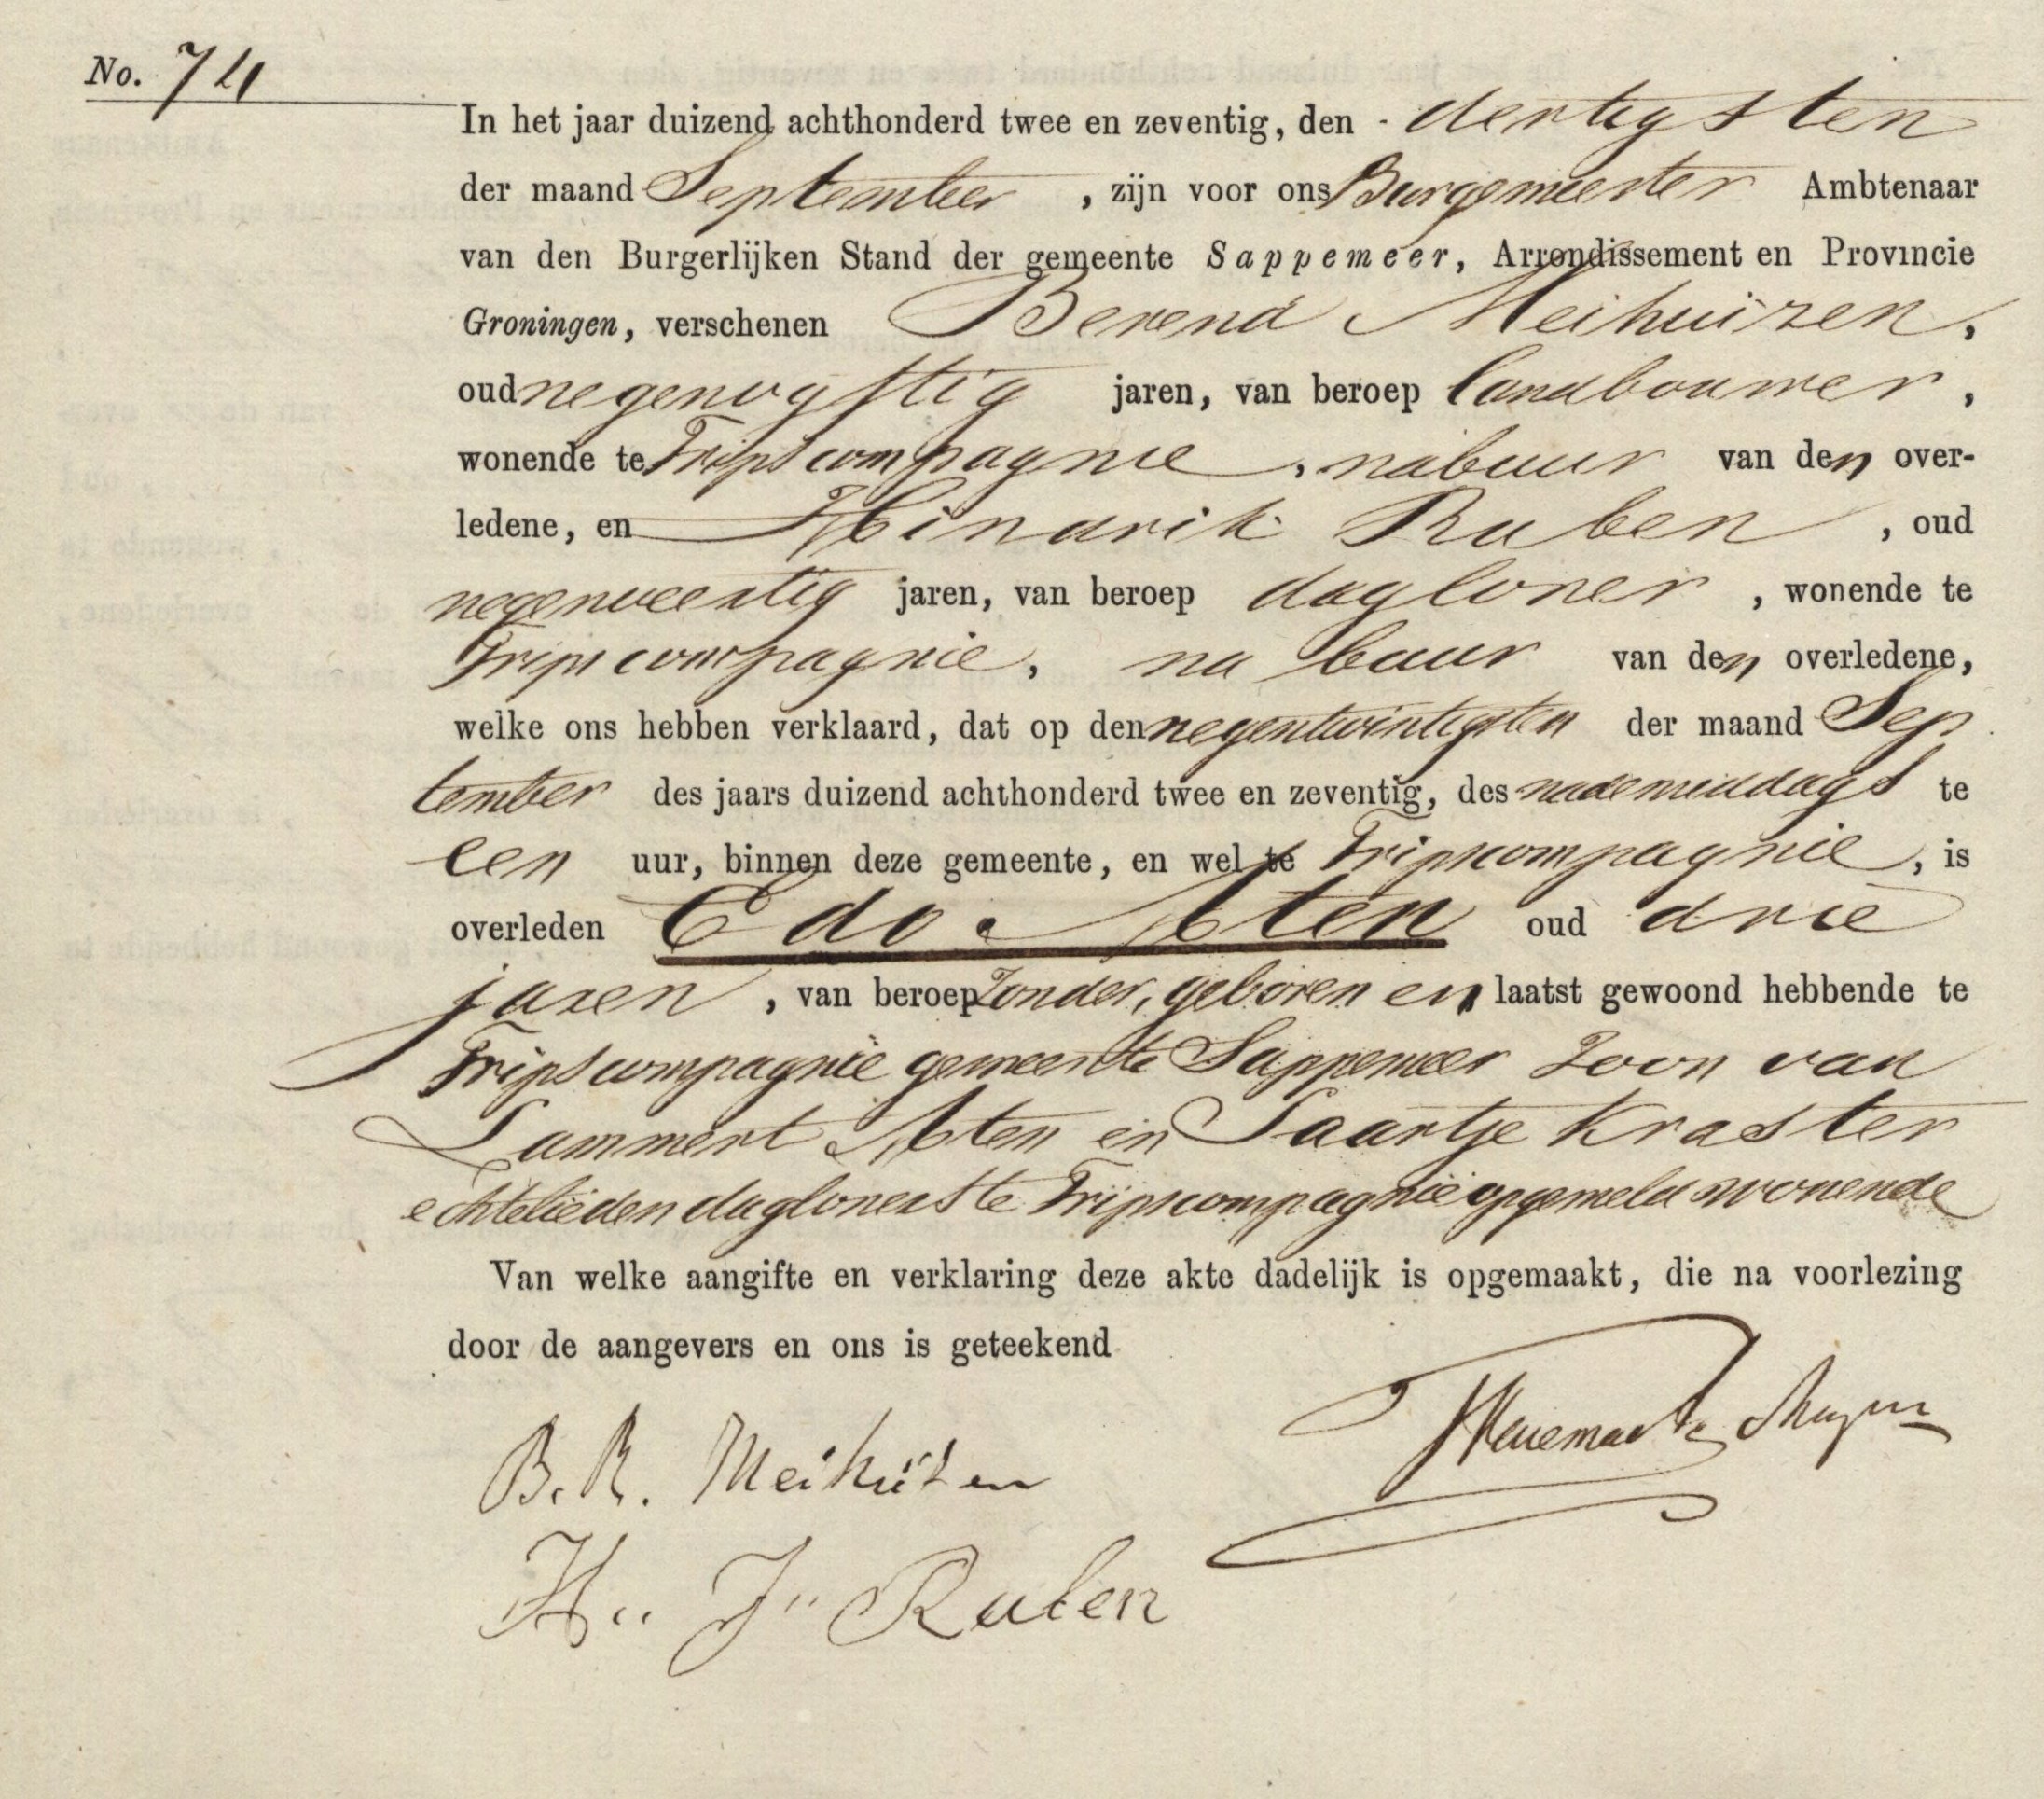 No. 74
In het jaar duizend achthonderd twee en zeventig, den - dertigsten
der maand September , zijn voor ons Burgemeester Ambtenaar
van den Burgerlijken Stand der gemeente Sappemeer, Arrondissement en Provincie
Groningen, verschenen Berend Meihuizen,
oud negenvyftig jaren, van beroep landbouwer,
wonende te Tripscompagnie, nabuur van den over-
ledene, en Hindrik Ruben, oud
negenveertig jaren, van beroep dagloner, wonende te
Tripscompagnie, nabuur van den overledene,
welke ons hebben verklaard, dat op den negentwintigsten der maand Sep
tember des jaars duizend achthonderd twee en zeventig, des nademiddags te
een uur, binnen deze gemeente, en wel te Tripscompagnie, is
overleden Edo Aten oud drie
jaren, van beroep zonder, geboren en laatst gewoond hebbende te
Tripscompagnie gemeente Sappemeer Zoon van
Lammert Aten en Saartje Kraster
echtelieden dagloners te Tripscompagnie opgemeld wonende
Van welke aangifte en verklaring deze akte dadelijk is opgemaakt, die na voorlezing
door de aangevers en ons is geteekend
B. R. Meihuizen
H. J. Ruben